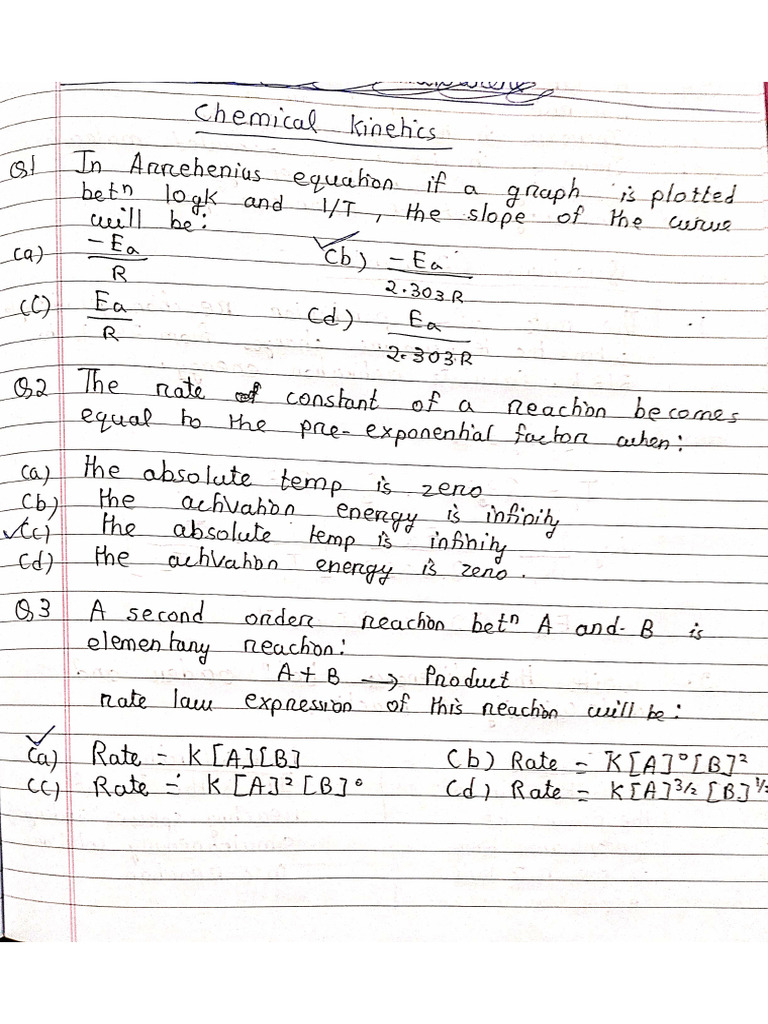 Chemical Kinetics
Q1 In Arrehenius equation if a graph is plotted
betⁿ logK and 1/T, the slope of the curve
will be:
(a) -Ea/R ✓(b) -Ea/2.303R
(c) Ea/R (d) Ea/2.303R
Q2 The rate of constant of a reaction becomes
equal to the pre-exponential factor when:
(a) the absolute temp is zero
(b) the activation energy is infinity
✓(c) the absolute temp is infinity
(d) the activation energy is zero.
Q3 A second order reaction betⁿ A and B is
elementary reaction:
A + B → Product
rate law expression of this reaction will be:
✓(a) Rate = K[A][B] (b) Rate = K[A]⁰[B]²
(c) Rate = K[A]²[B]⁰ (d) Rate = K[A]^3/2 [B]^1/2